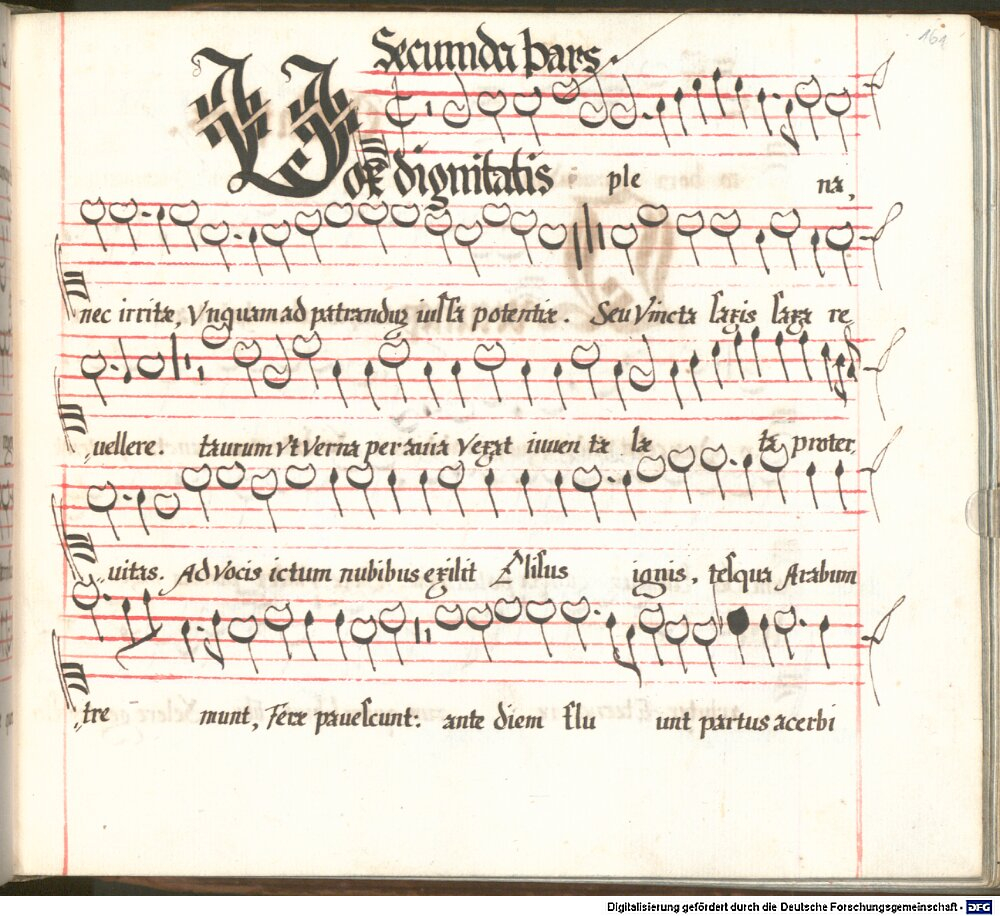 161
Secunda pars.
Vox dignitatis ple na,
nec irritæ, Vnquam ad patrandum iussa potentiæ. Seu Vincta saxis saxa re
uellere. taurum vt Verna per auia Vexat iuuen ta læ ta proter,
uitas. Ad Vocis ictum nubibus exilit Elisus ignis, telqua Arabum
tre munt, Feræ pauescunt: ante diem flu unt partus acerbi
Digitalisierung gefördert durch die Deutsche Forschungsgemeinschaft - DFG